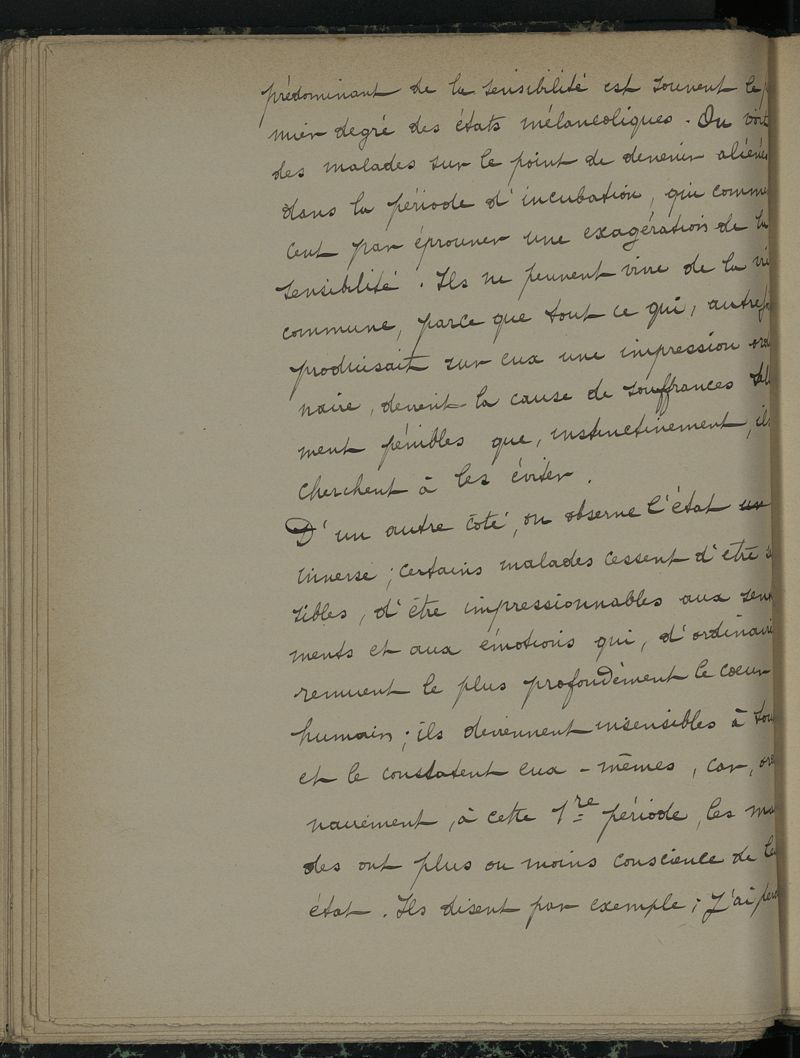 prédominant de la sensibilité est souvent le p
mier degré des états mélancoliques. On voit
des malades sur le point de devenir aliénés
dans la période d'incubation, qui comme
cent par éprouver une exagération de la
sensibilité. Ils ne peuvent vivre de la vie
commune, parce que tout ce qui, autref
produisait sur eux une impression ord
naire, devient la cause de souffrances tell
ment pénibles que, instinctivement, ils
cherchent à les éviter.
D'un autre côté, on observe l'état
inverse; certains malades cessent d'être s
sibles, d'être impressionnables aux sen
ments et aux émotions qui, d'ordinaire
remuent le plus profondément le coeur
humain; ils deviennent insensibles à tou
et le constatent eux-mêmes, car, ord
nairement, à cette 1re période, les ma
des ont plus ou moins conscience de le
état. Ils disent par exemple; J'ai perd